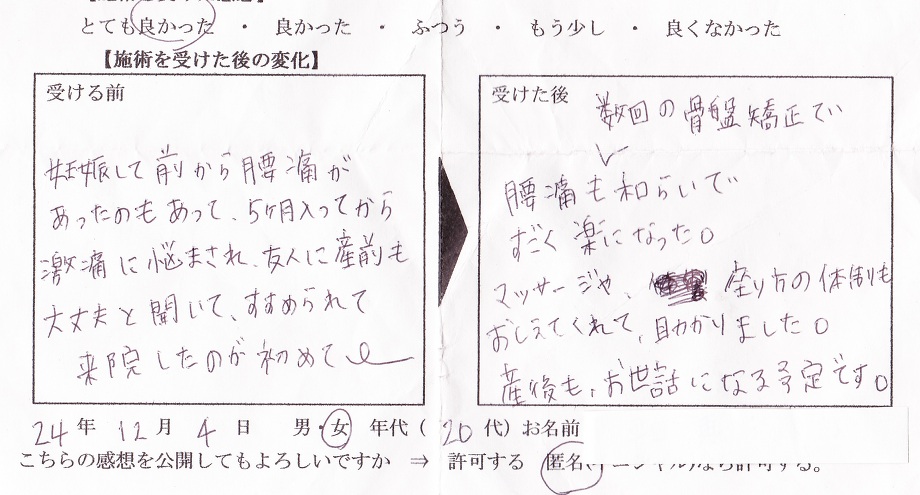 とても良かった ・ 良かった ・ ふつう ・ もう少し ・ 良くなかった
【施術を受けた後の変化】
受ける前
妊娠して前から腰痛が
あったのもあって、5ヶ月入ってから
激痛に悩まされ、友人に産前も
大丈夫と聞いて、すすめられて
来院したのが初めて
受けた後
数回の骨盤矯正で
腰痛も和らいで
すごく楽になった。
マッサージや、座り方の体制も
おしえてくれて、助かりました。
産後も、お世話になる予定です。
24年 12月 4日 男・女 年代(20代)お名前
こちらの感想を公開してもよろしいですか ⇒ 許可する 匿名(イニシャル)なら許可する。